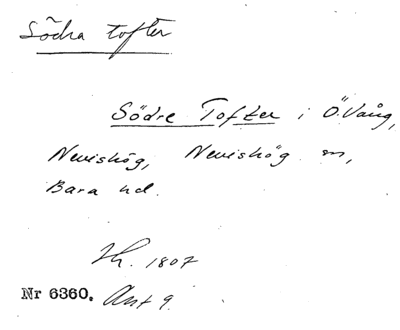 Södra tofter
Södre Tofter i Ö. Vång,
Nevishög, Nevishög sn,
Bara hd.
Th. 1807
Nr 6360. Akt 9.